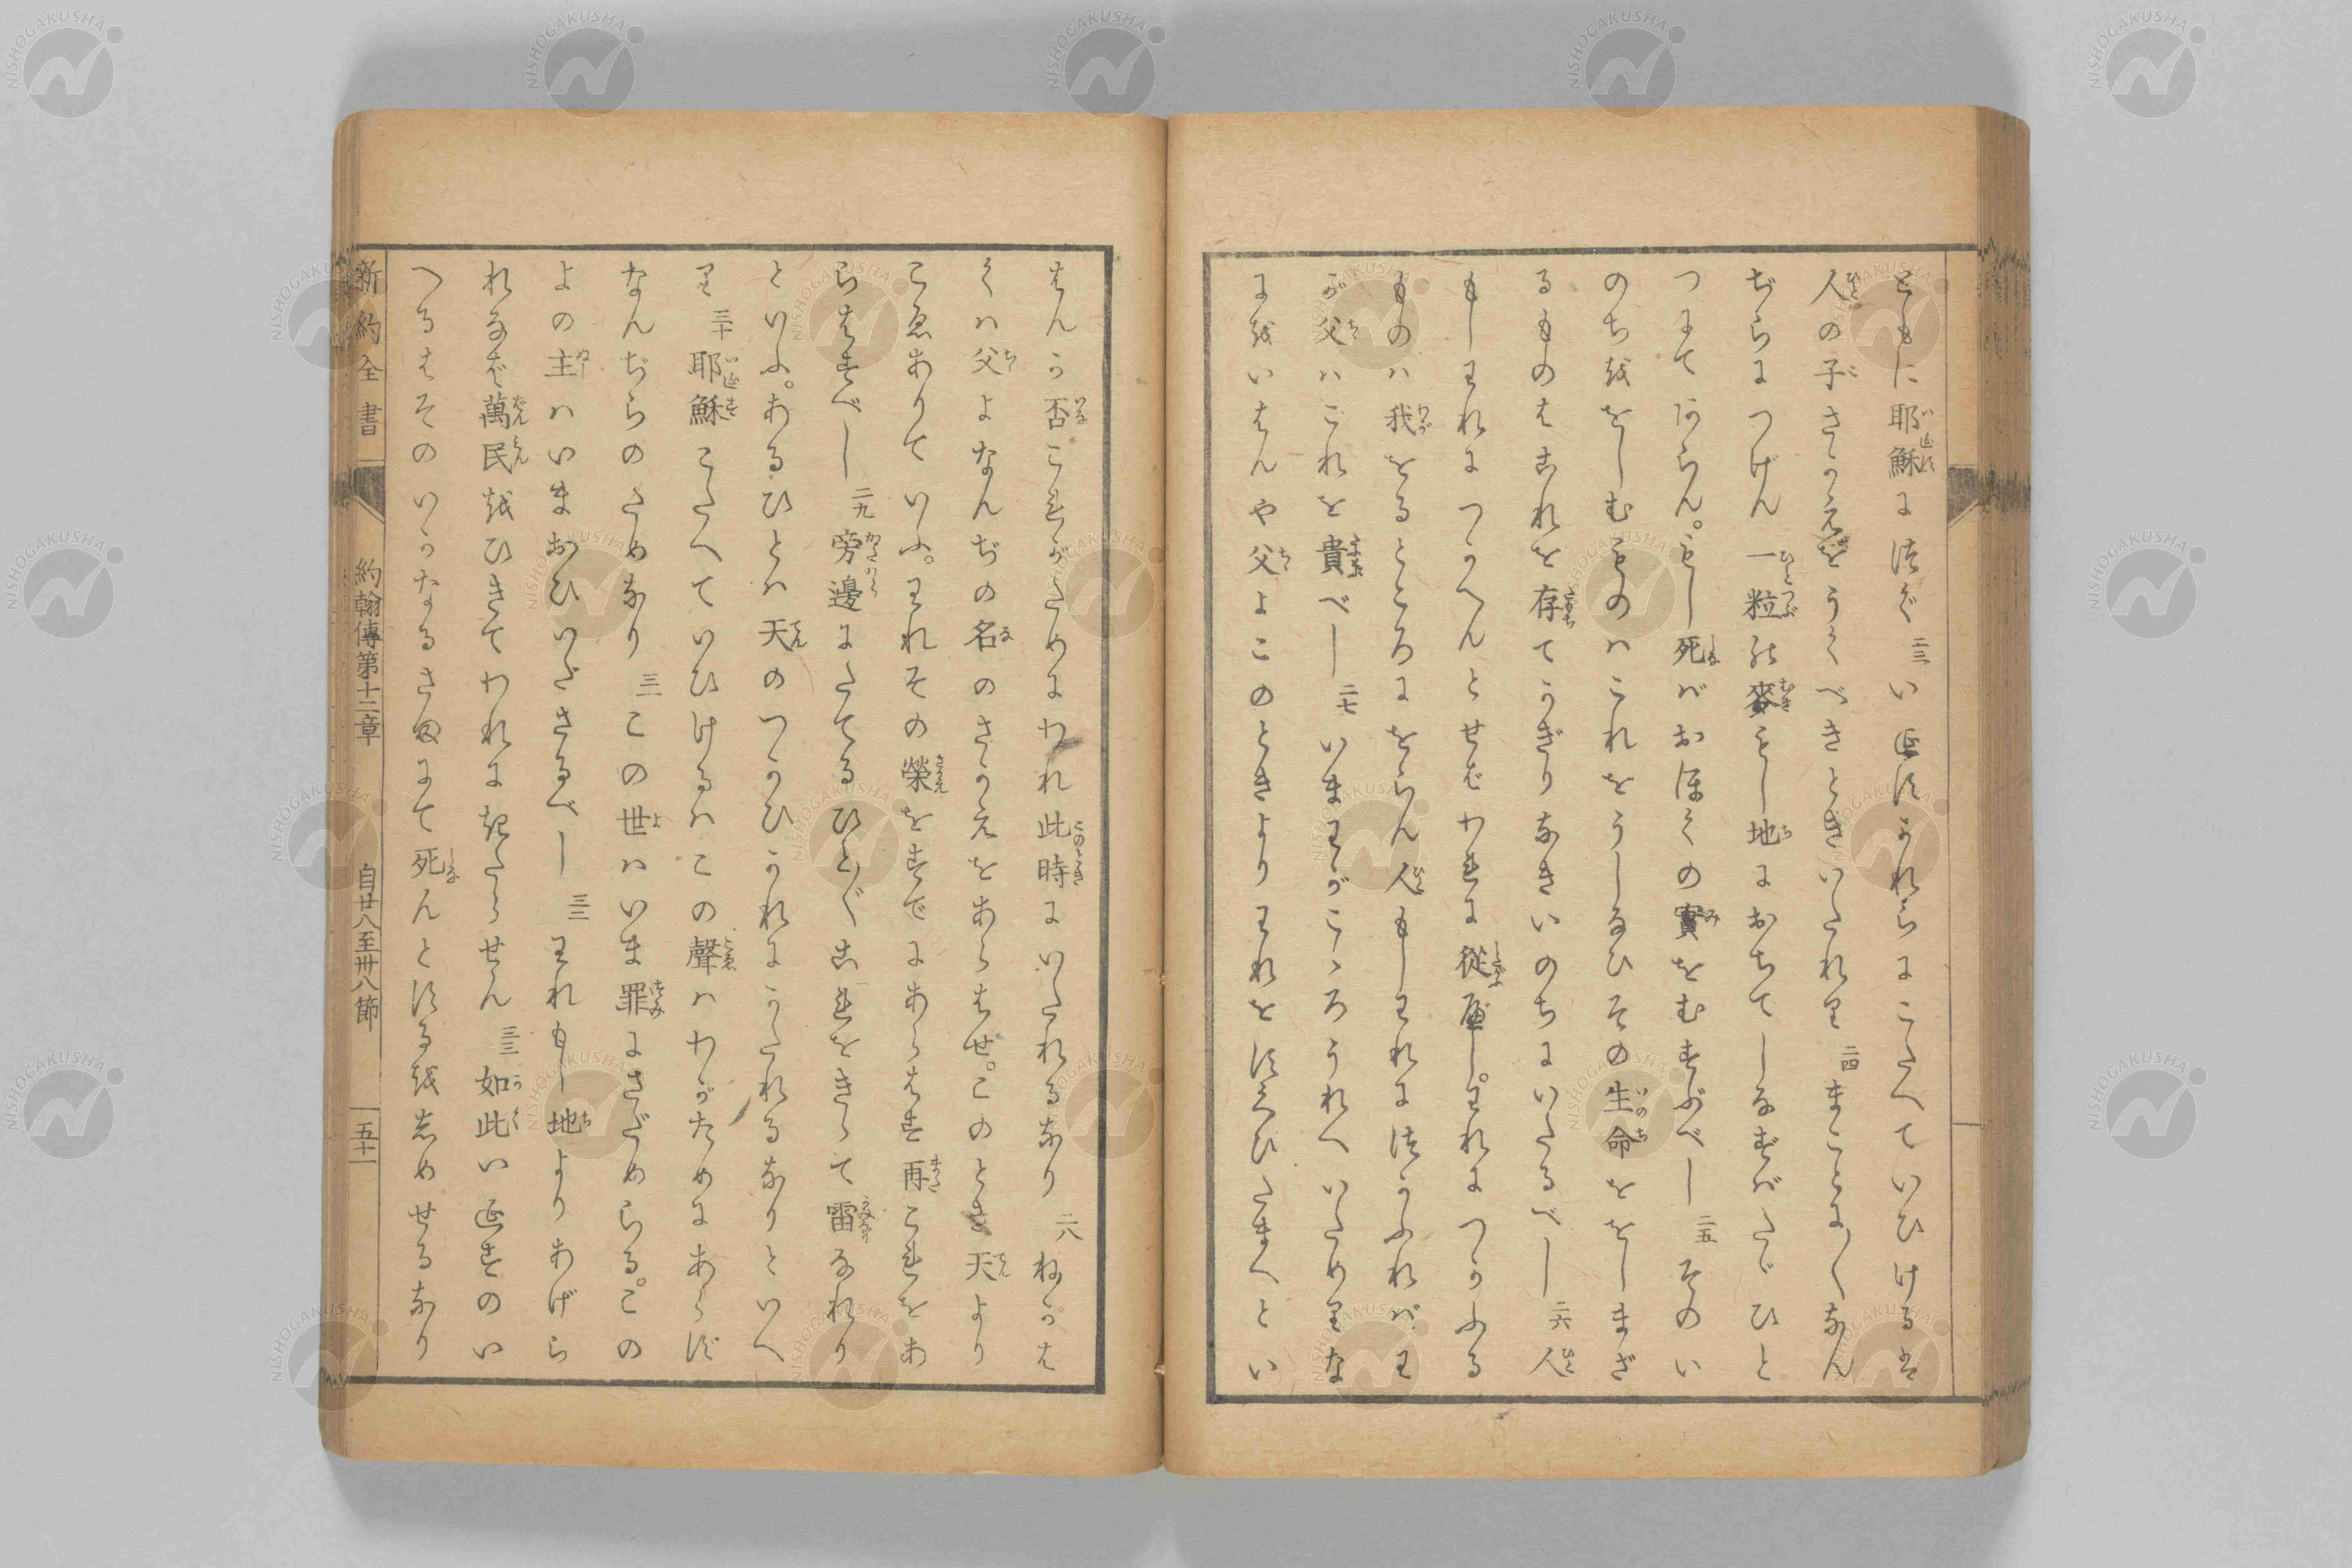 ともに耶穌に法ぐ 二三 いゑすかれらにこたへていひけるは
人の子さかえをうくべきときいたれり 二四 まことに〱なん
ぢらにつげん一粒の麥もし地におちてしなずばたゞひと
つにてあらん。もし死ばおほくの實をむすぶべし 二五 そのい
のちををしむものハこれをうしなひその生命ををしまざ
るものはこれを存てかぎりなきいのちにいたるべし 二六 人
もしわれにつかへんとせばわれに從べし。われにつかふる
ものハ我をるところにをらん人もしわれにつかふればわ
が父ハこれを貴べし 二七 いまわがこゝろうれへいためりな
にをいはんや父よこのときよりわれをすくひたまへとい
はんか否これがためにわれ此時にいたれるなり 二八 ねがは
くハ父よなんぢの名のさかえをあらはせ。このとき天より
こゑありていふ。われその榮をすでにあらはす再これをあ
らはすべし 二九 旁邊にたてるひと〲これをきゝて雷なれり
といふ。あるひとハ天のつかひかれにかたれるなりといへ
り 三十 耶穌こたへていひけるハこの聲ハわがためにあらず
なんぢらのためなり 三一 この世ハいま罪にさだめらる。この
よの主ハいまおひいださるべし 三二 われもし地よりあげら
れなば萬民をひきてわれにきたらせん 三三 如此いゑすのい
へるはそのいかなるさまにて死んとするをしめせるなり
新約全書
約翰傳第十二章
自廿八至卅八節
五十一